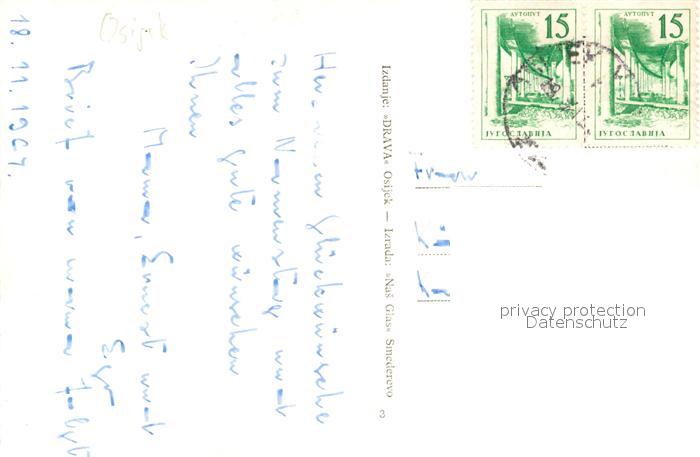 Osijek
18.11.1961.
Herzlichen Glückwünsche
zum Namenstag und
alles gute wünschen
Ihnen
Mama, Ernest und
Brief von mama folgt
Izdanje: »DRAVA« Osijek — Izrada: »Naš Glas« Smederevo
3
АУТОПУТ
15
ЈУГОСЛАВИЈА
АУТОПУТ
15
ЈУГОСЛАВИЈА
Frau
privacy protection
Datenschutz